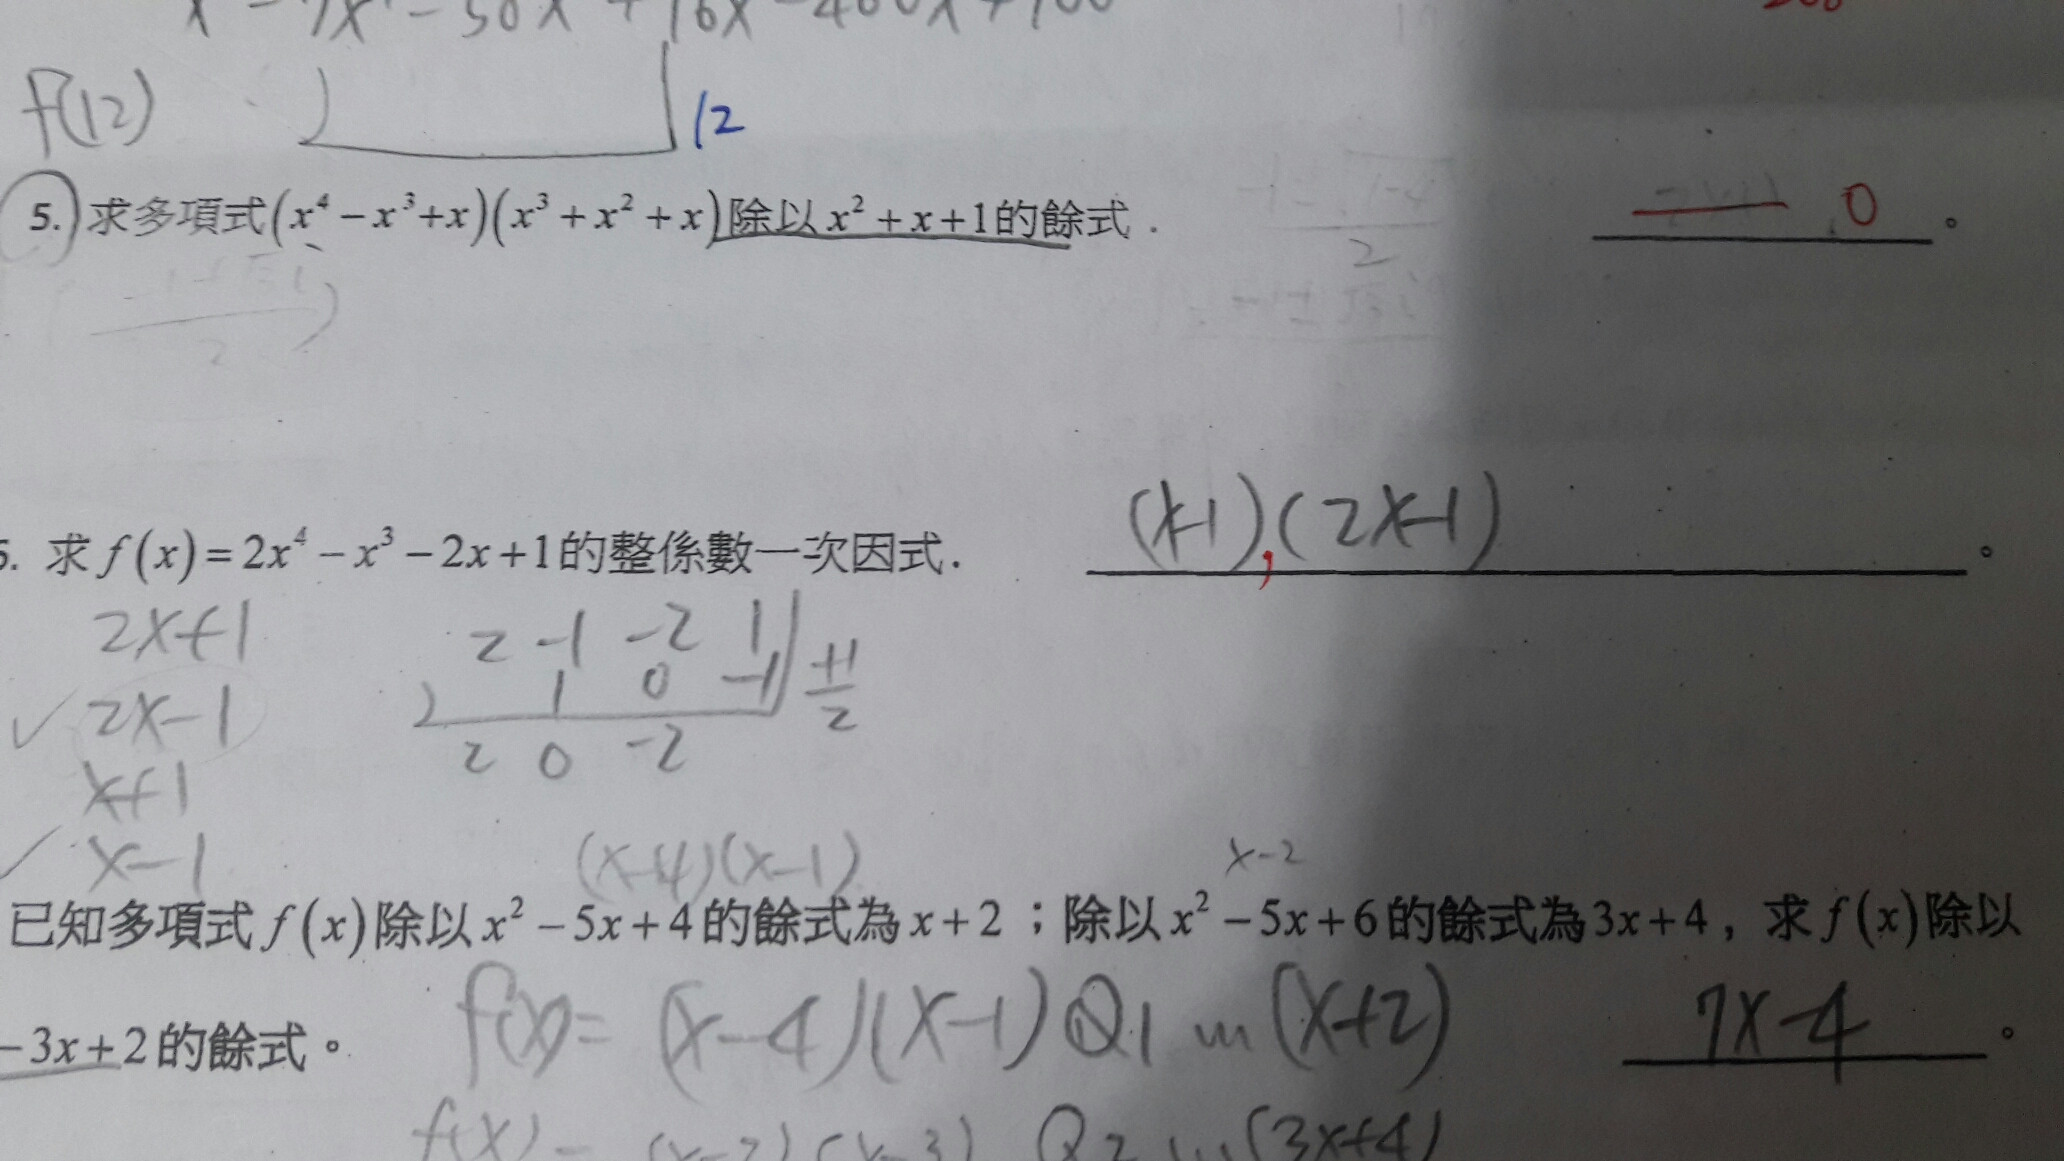 f(12) 12
5. 求多項式(x⁴－x³+x)(x³＋x²＋x)除以x²＋x＋1的餘式． 0 。
求f(x)＝2x⁴－x³－2x＋1的整係數一次因式． (x-1),(2x-1) 。
2x+1 2 -1 -2 1 +1/2
1 0 -1
2x-1 2 0 -2
x+1
x-1 (x-4)(x-1) x-2
已知多項式f(x)除以x²－5x＋4的餘式為x＋2；除以x²－5x＋6的餘式為3x＋4，求f(x)除以
－3x＋2的餘式。 f(x)= (x-4)(x-1)Q1 ... (x+2) 7x-4 。
f(x)= (x-2)(x-3) Q2 ... (3x+4)